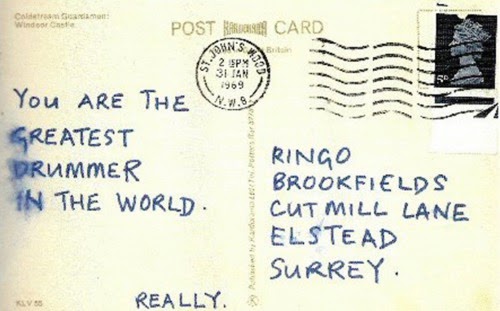 Coldstream Guardsmen:
Windsor Castle.
POST KARDORAMA CARD
Britain
ST. JOHN'S WOOD
2 15PM
31 JAN
1969
N.W.8.
5D
YOU ARE THE
GREATEST
DRUMMER
IN THE WORLD.
REALLY.
RINGO
BROOKFIELDS
CUT MILL LANE
ELSTEAD
SURREY.
Published by Kardorama Ltd
KLV 55